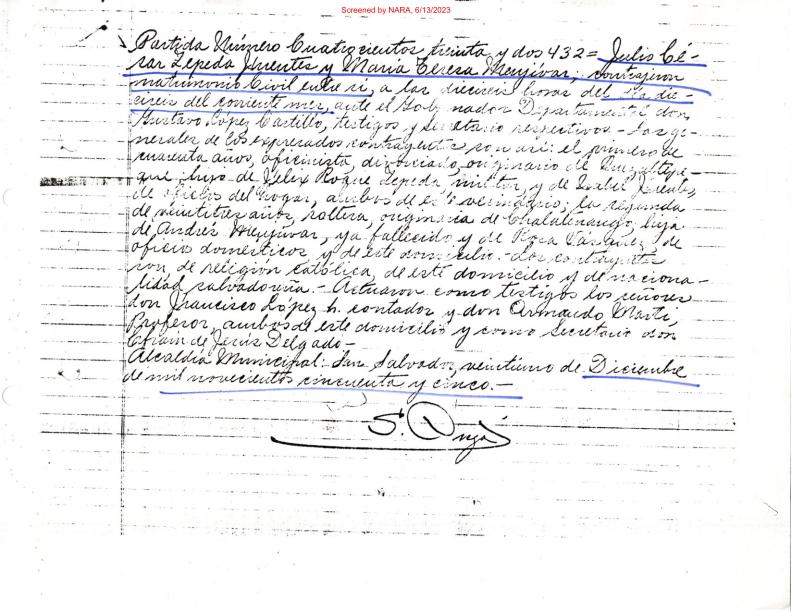 Screened by NARA, 6/13/2023
Partida Número Cuatrocientos treinta y dos 432= Julio Cé-
sar Zepeda Fuentes y Maria Teresa Menjívar, contrajeron
matrimonio Civil entre si, a las dieciseis horas del dia die-
ciseis del corriente mes, ante el Gobernador Departamental don
Gustavo López Castillo, testigos y secretario respectivos.- Las ge-
nerales de los expresados contrayentes son asi: el primero de
cuarenta años, oficinista, divorciado, originario de Quezaltepe-
que, hijo de Félix Roque Zepeda, militar, y de Isabel Fuentes,
de oficios del hogar, ambos de este vecindario; la segunda
de veintitres años, soltera, originaria de Chalatenango, hija
de Andrés Menjívar, ya fallecido y de Rosa Vasquez, de
oficios domésticos y de este domicilio.- Los contrayentes
son de religión católica, de este domicilio y de naciona-
lidad salvadoreña.- Actuaron como testigos los señores
don Francisco López h. contador y don Armando Marti,
Profesor, ambos de este domicilio y como Secretario don
Efrain de Jesús Delgado-
Alcaldía Municipal: San Salvador, veintiuno de Diciembre
de mil novecientos cincuenta y cinco.-
S.